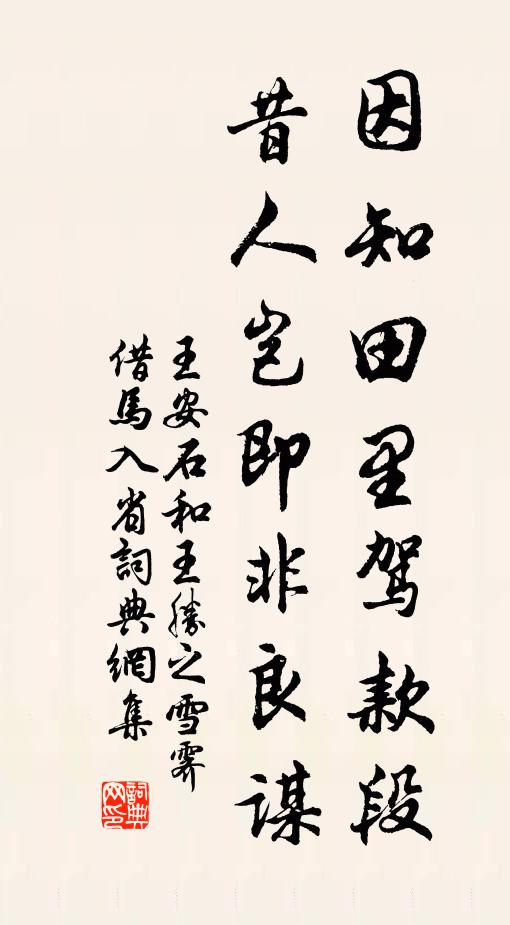 因知田里駕款段
昔人岂即非良謀
王安石和王勝之雪霽
借馬入省詞典網集
詞典网印